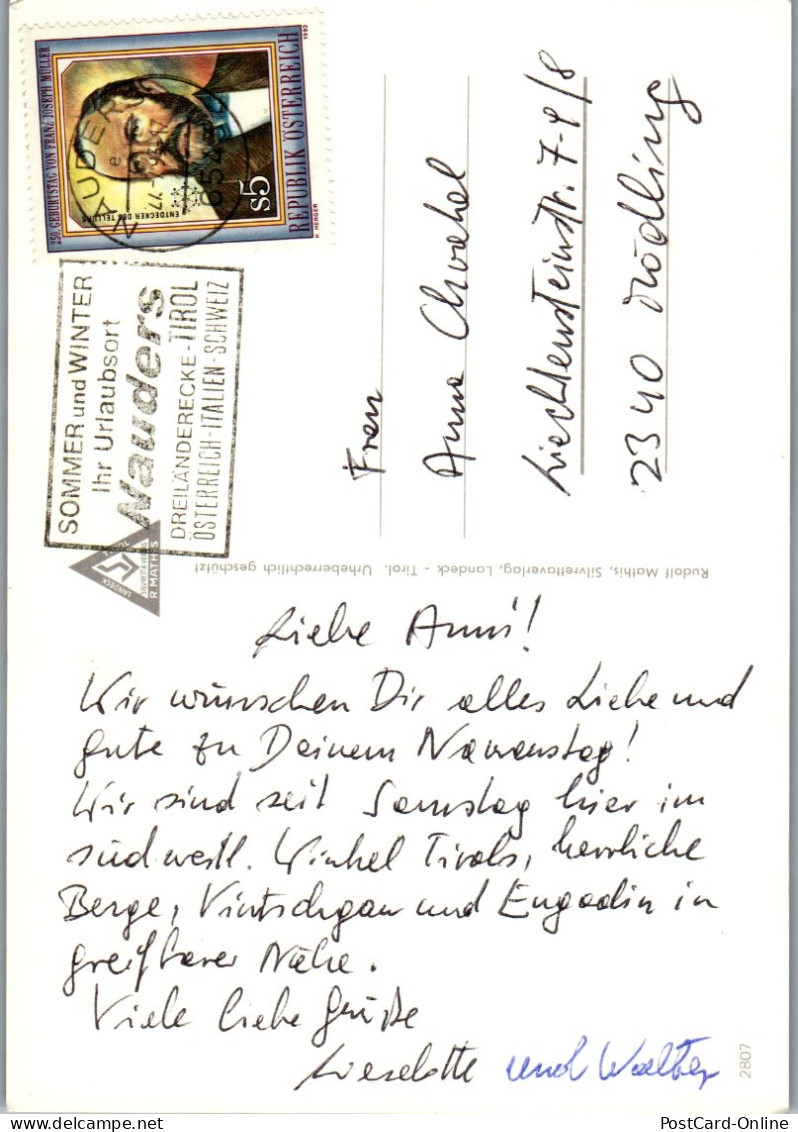 250. GEBURTSTAG VON FRANZ JOSEPH MÜLLER
ENTDECKER DES TELLURS
S5
REPUBLIK ÖSTERREICH
P. HERGER
1992
NAUDERS
6543
SOMMER und WINTER
Ihr Urlaubsort
Nauders
DREILÄNDERECKE-TIROL
ÖSTERREICH-ITALIEN-SCHWEIZ
LANDECK
TIROL
SILVRETTAVERLAG
R. MATHIS
Frau
Anna
Liechtensteinstr. 7-9/8
2340 Mödling
Rudolf Mathis, Silvrettaverlag, Landeck - Tirol. Urheberrechtlich geschützt
Liebe Anni!
Wir wünschen Dir alles Liebe und
gute zu Deinem Namenstag!
Wir sind seit Samstag hier im
südwestl. Winkel Tirols, herrliche
Berge, Vintschgau und Engadin in
greifbarer Nähe.
Viele liebe Grüße
Lieselotte und Walter
2807
PostCard-Online